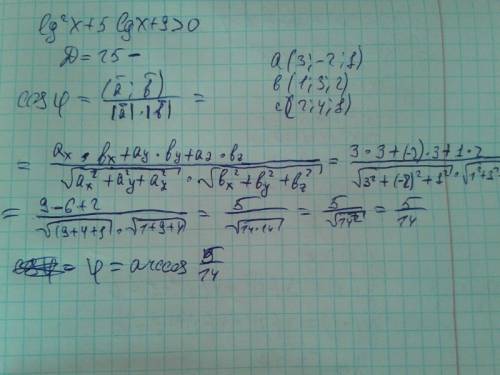 lg²x+5 lgx+9>0
D=25-
a(3;-2;1)
b(1;3;2)
c(2;4;1)
cos φ = (a̅; b̅) / |a̅|·|b̅| =
= ax·bx+ay·by+az·bz / √(ax²+ay²+az²)·√(bx²+by²+bz²) = 3·3+(-2)·3+1·2 / √(3²+(-2)²+1²)·√(1²+3²
= 9-6+2 / √(9+4+1)·√(1+9+4) = 5 / √(14·14) = 5 / √14² = 5/14
φ = arccos 5/14